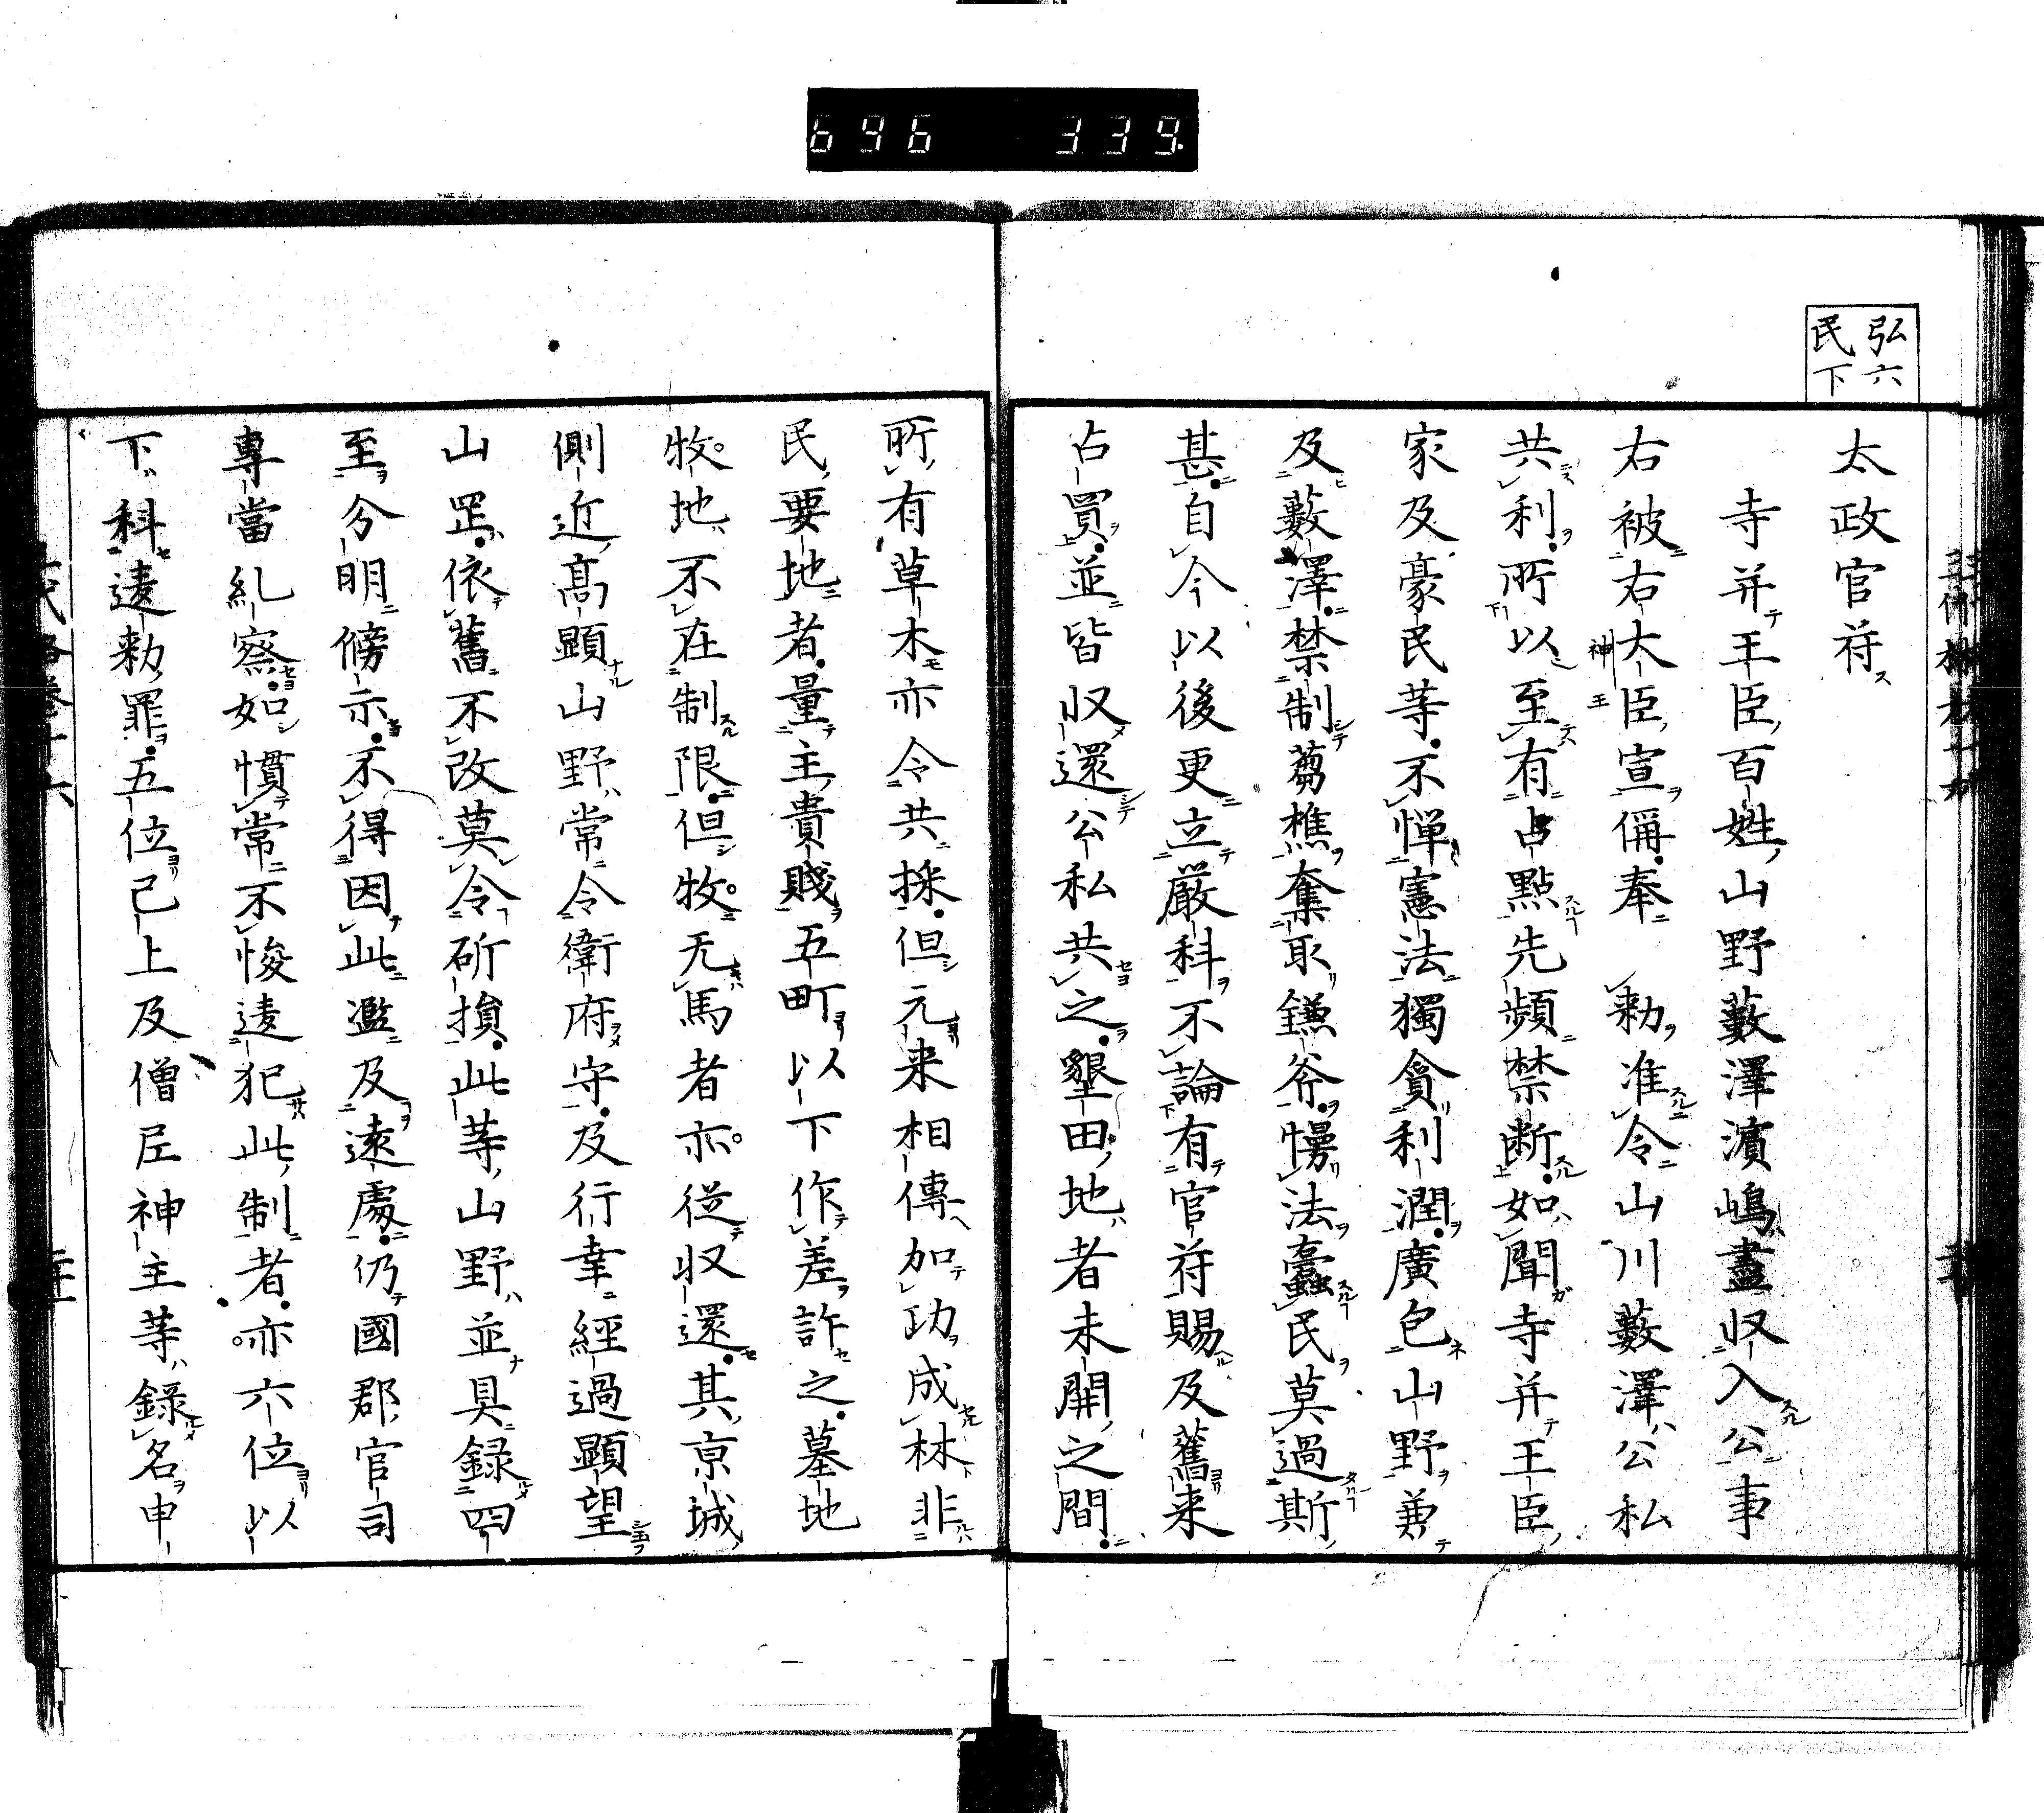 696 339.
弘六
民下
太政官符
寺并王臣百姓山野藪澤濱嶋盡収入公事
右被右大臣宣偁奉 勅准令山川藪澤公私
神
王
共利所以至有占點先頻禁断如聞寺并王臣
家及豪民等不憚憲法獨貪利潤廣包山野兼
及藪澤禁制蒭樵奪取鎌斧慢法蠹民莫過斯
甚自今以後更立嚴科不論有官符賜及舊来
占買並皆収還公私共之墾田地者未開之間
所有草木亦令共採但元来相傳加功成林非
民要地者量主貴賤五町以下作差許之墓地
牧地不在制限但牧无馬者亦従収還其京城
側近高顕山野常令衛府守及行幸經過顕望
山罡依舊不改莫令斫損此等山野並具録四
至分明傍示不得因此濫及遠處仍國郡官司
專當糺察如慣常不悛違犯此制者亦六位以
下科違勅罪五位已上及僧尼神主等録名申